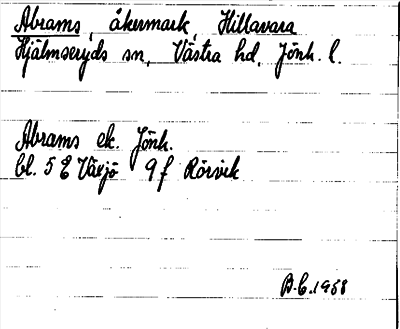 Abrams, åkermark, Hillavara
Hjälmseryds sn, Västra hd, Jönk. l.
Abrams ek. Jönk.
bl. 5 E Växjö 9 f Rörvik
B.C. 1958